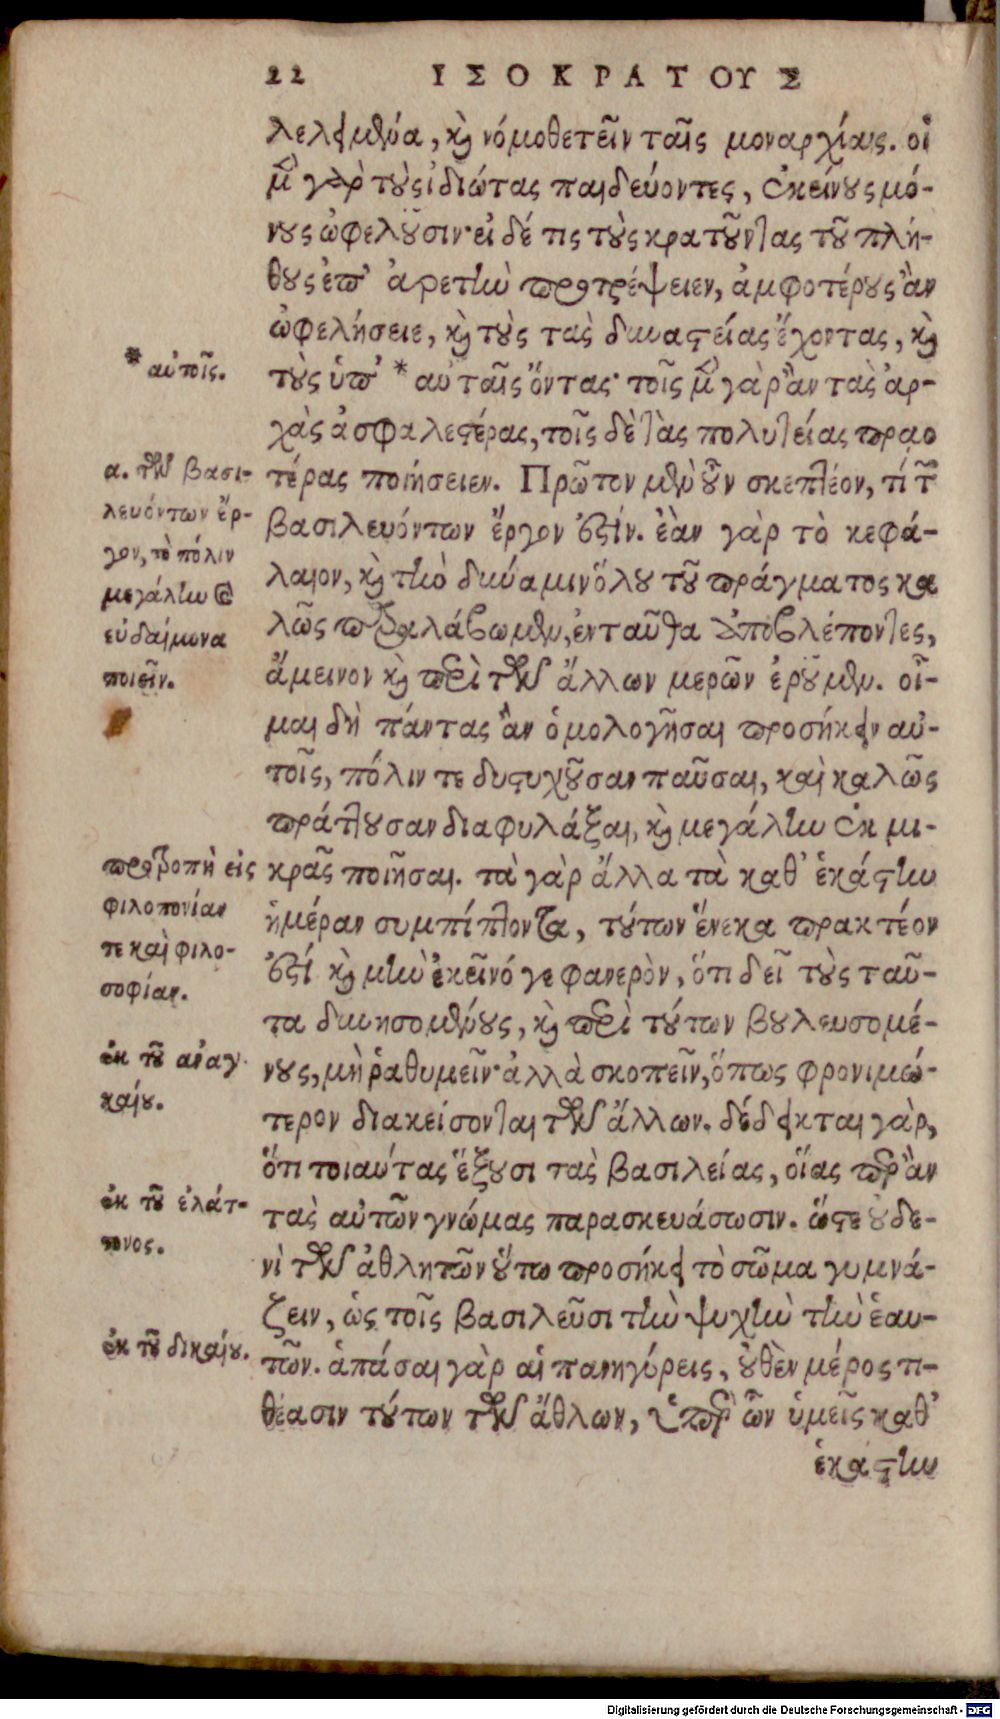 22 ΙΣΟΚΡΑΤΟΥΣ
λελειμμένα, καὶ νομοθετεῖν ταῖς μοναρχίαις. οἱ
μὲν γὰρ τοὺς ἰδιώτας παιδεύοντες, ἐκείνους μό-
νους ὠφελοῦσιν· εἰ δέ τις τοὺς κρατοῦντας τοῦ πλή-
θους ἐπ' ἀρετὴν προτρέψειεν, ἀμφοτέρους ἂν
ὠφελήσειε, καὶ τοὺς τὰς δυναστείας ἔχοντας, καὶ
* αὐτοῖς.
τοὺς ὑπ' * αὐταῖς ὄντας· τοῖς μὲν γὰρ ἂν τὰς ἀρ-
χὰς ἀσφαλεστέρας, τοῖς δὲ τὰς πολιτείας πραο
τέρας ποιήσειεν. Πρῶτον μὲν οὖν σκεπτέον, τί τῶν
βασιλευόντων ἔργον ἐστίν. ἐὰν γὰρ τὸ κεφά-
λαιον, καὶ τὴν δύναμιν ὅλου τοῦ πράγματος κα
λῶς παραλάβωμεν, ἐνταῦθα ἀποβλέποντες,
ἄμεινον καὶ περὶ τῶν ἄλλων μερῶν ἐροῦμεν. οἶ-
α. τῶν βασι-
λευόντων ἔρ-
γον, τὸ πόλιν
μεγάλην καὶ
εὐδαίμονα
ποιεῖν.
μαι δὴ πάντας ἂν ὁμολογῆσαι προσήκειν αὐ-
τοῖς, πόλιν τε δυστυχοῦσαν παῦσαι, καὶ καλῶς
πράττουσαν διαφυλάξαι, καὶ μεγάλην ἐκ μι-
κρᾶς ποιῆσαι. τὰ γὰρ ἄλλα τὰ καθ' ἑκάστην
ἡμέραν συμπίπτοντα, τούτων ἕνεκα πρακτέον
ἐστί· καὶ μὴν ἐκεῖνό γε φανερὸν, ὅτι δεῖ τοὺς ταῦ-
προτροπὴ εἰς
φιλοπονίαν
τε καὶ φιλο-
σοφίαν.
τα δυνησομένους, καὶ περὶ τούτων βουλευσομέ-
νους, μὴ ῥαθυμεῖν· ἀλλὰ σκοπεῖν, ὅπως φρονιμώ-
τερον διακείσονται τῶν ἄλλων. δέδεικται γὰρ,
ἐκ τοῦ ἀναγ-
καίου.
ὅτι τοιαύτας ἕξουσι τὰς βασιλείας, οἵας περ ἂν
τὰς αὐτῶν γνώμας παρασκευάσωσιν. ὥστε οὐδε-
νὶ τῶν ἀθλητῶν οὕτω προσήκει τὸ σῶμα γυμνά-
ἐκ τοῦ ἐλάτ-
τονος.
ζειν, ὡς τοῖς βασιλεῦσι τὴν ψυχὴν τὴν ἑαυ-
τῶν. ἁπάσαι γὰρ αἱ πανηγύρεις, οὐθὲν μέρος τι-
ἐκ τοῦ δικαίου.
θέασιν τούτων τῶν ἄθλων, ὑπὲρ ὧν ὑμεῖς καθ'
ἑκάστην
Digitalisierung gefördert durch die Deutsche Forschungsgemeinschaft - DFG